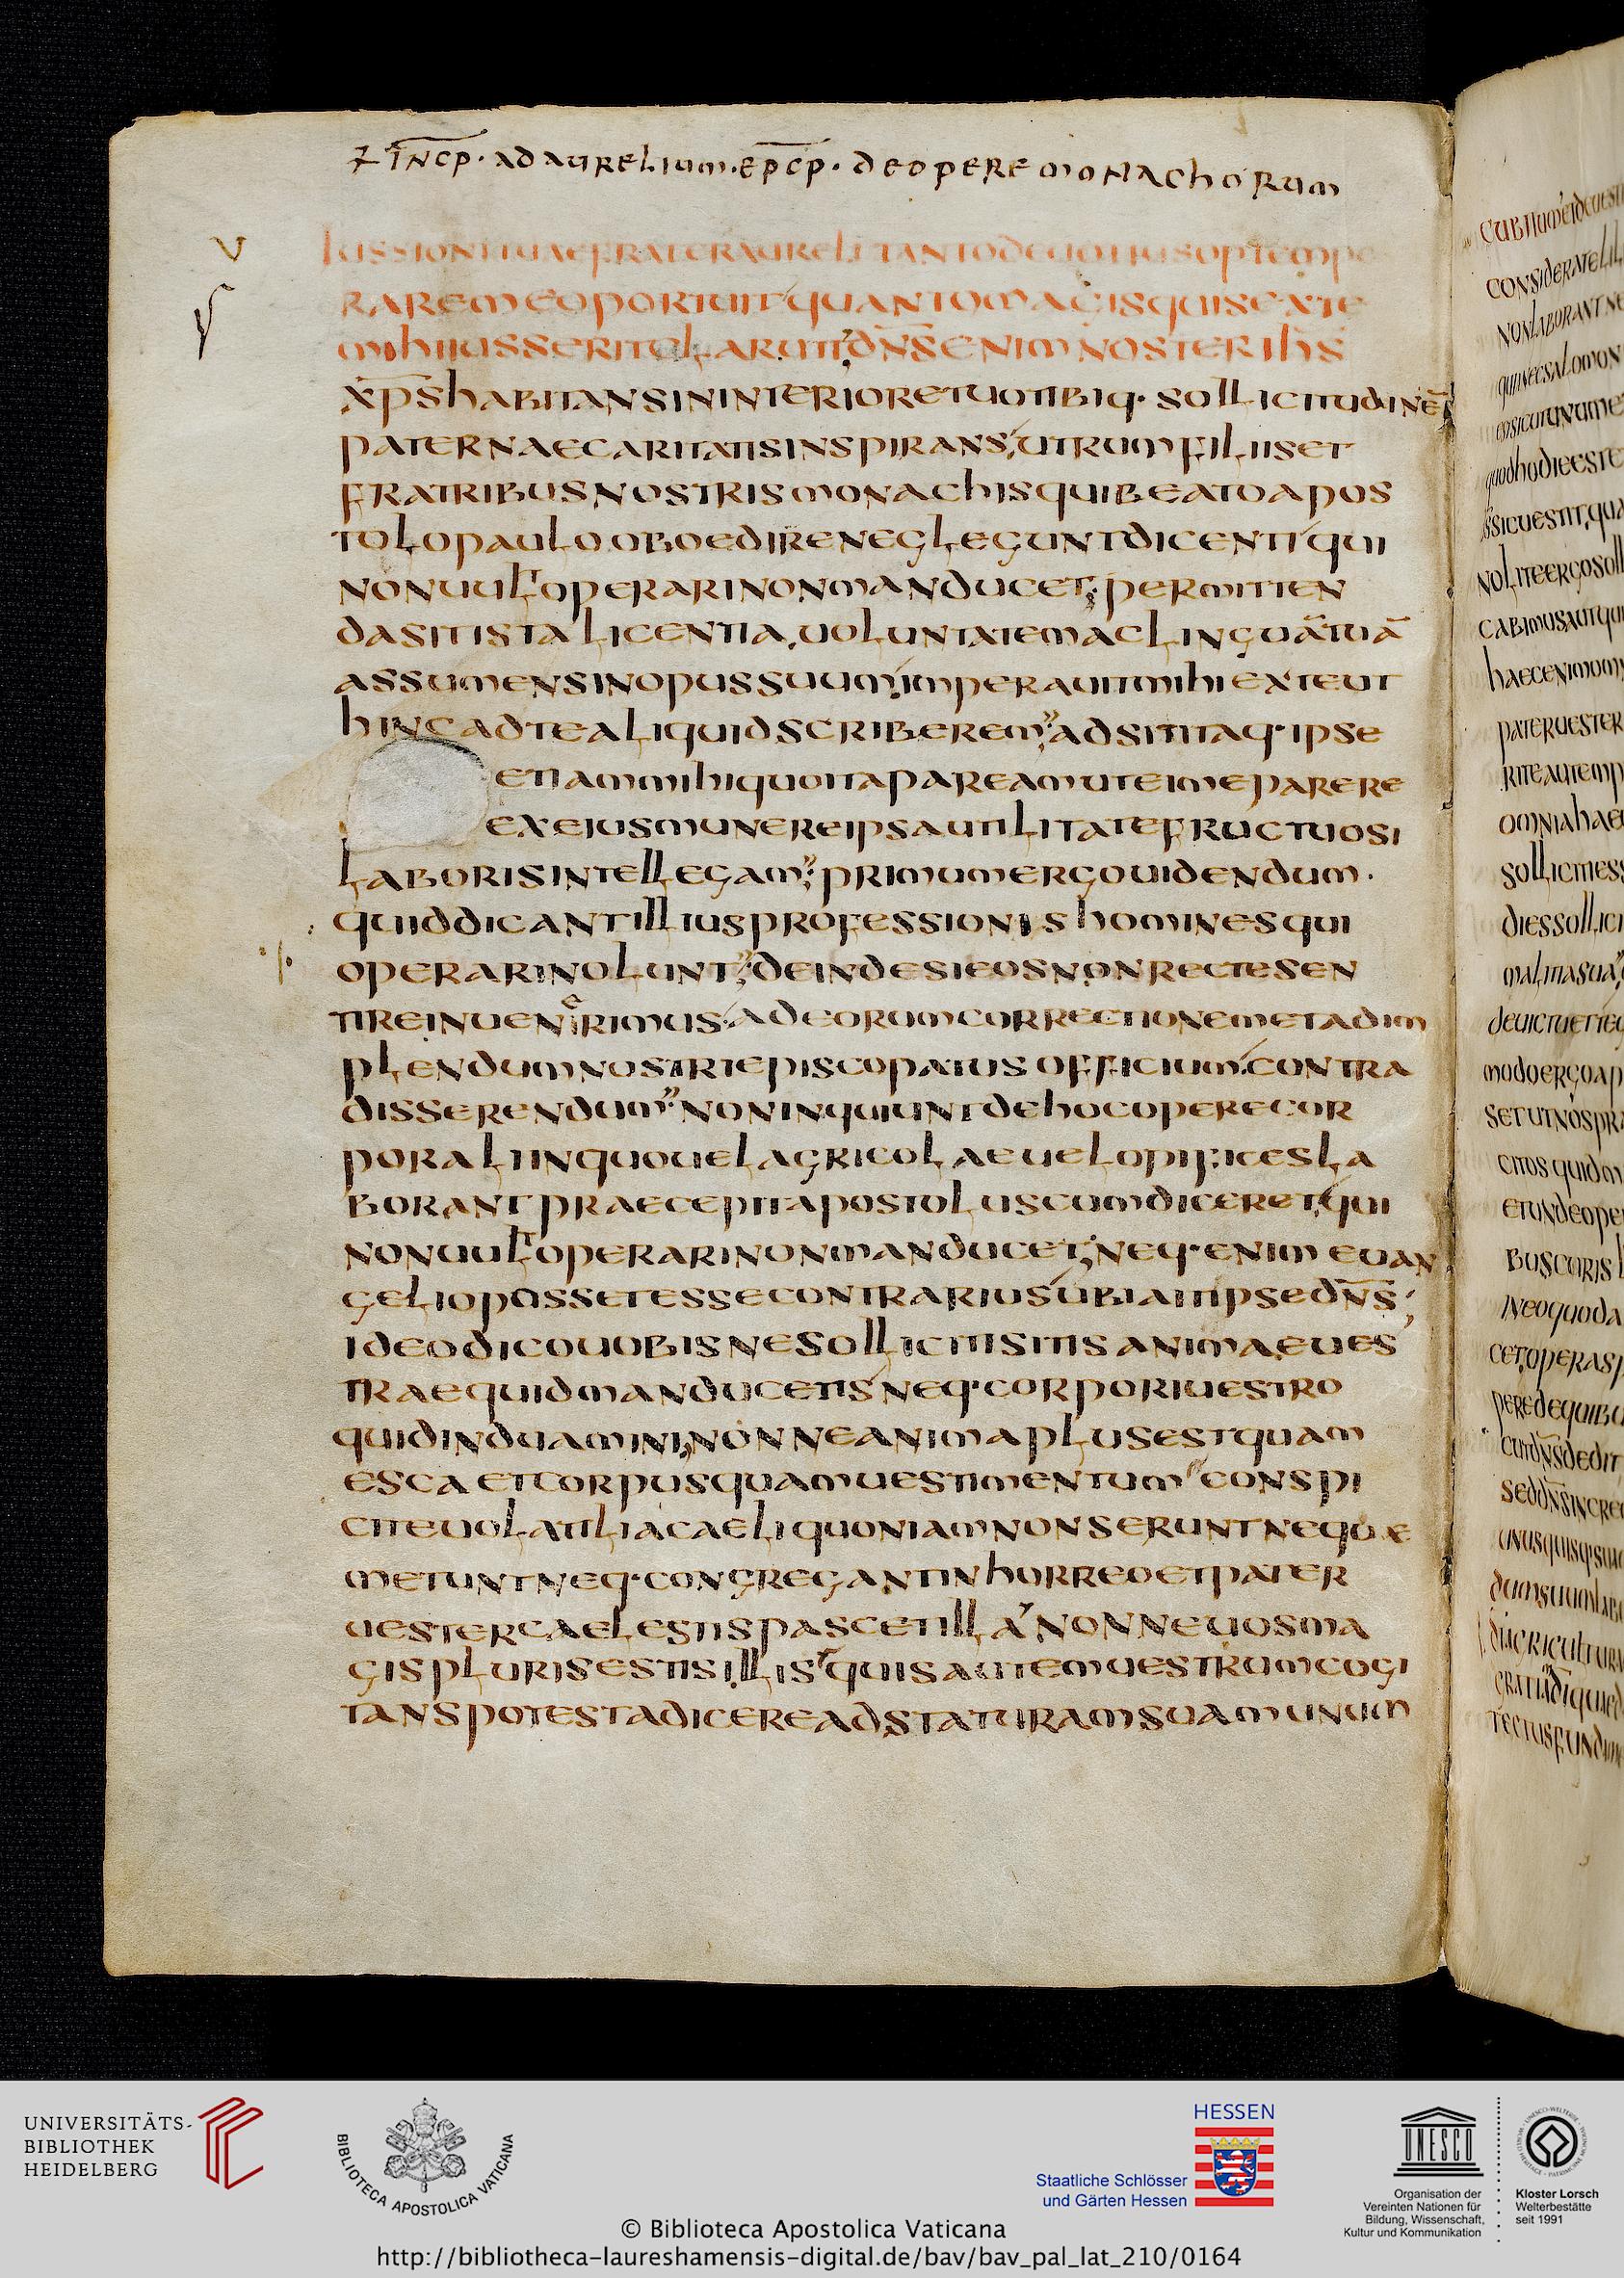 INCP· AD AURELIUM·EPCP· DE OPERE MONACHORUM
IUSSIONI TUAE FRATER AURELI TANTO DEUOTIUS OPTEMPE
RARE ME OPORTUIT QUANTO MAGIS QUIS EX TE
MIHI IUSSERIT CLARUIT DNS ENIM NOSTER IHS
XPS HABITANS IN INTERIORE TUO TIBIQ· SOLLICITUDINE
PATERNAE CARITATIS INSPIRANS, UTRUM FILIIS ET
FRATRIBUS NOSTRIS MONACHIS QUI BEATO APOS
TOLO PAULO OBOEDIRE NEGLEGUNT DICENTI QUI
NON UULT OPERARI NON MANDUCET; PERMITTEN
DA SIT ISTA LICENTIA, UOLUNTATEM AC LINGUĀ TUĀ
ASSUMENS IN OPUS SUUM, IMPERAUIT MIHI EX TE UT
HINC AD TE ALIQUID SCRIBEREM; ADSIT ITAQ· IPSE
ETIAM MIHI QUO ITA PAREAM UT EI ME PARERE
EX EIUS MUNERE IPSA UTILITATE FRUCTUOSI
LABORIS INTELLEGAM; PRIMUM ERGO UIDENDUM·
QUID DICANT ILLIUS PROFESSIONIS HOMINES QUI
OPERARI NOLUNT; DEINDE SI EOS NON RECTE SEN
TIRE INUENERIMUS· AD EORUM CORRECTIONEM ET AD IM
PLENDUM NOSTRI EPISCOPATUS OFFICIUM CONTRA
DISSERENDUM; NON INQUIUNT DE HOC OPERE COR
PORALI IN QUO UEL AGRICOLAE UEL OPIFICES LA
BORANT PRAECEPIT APOSTOLUS CUM DICERET, QUI
NON UULT OPERARI NON MANDUCET, NEQ· ENIM EUAN
GELIO POSSET ESSE CONTRARIUS UBI AIT IPSE DNS,
IDEO DICO UOBIS NE SOLLICITI SITIS ANIMAE UES
TRAE QUID MANDUCETIS NEQ· CORPORI UESTRO
QUID INDUAMINI, NONNE ANIMA PLUS EST QUAM
ESCA ET CORPUS QUAM UESTIMENTUM CONSPI
CITE UOLATILIA CAELI QUONIAM NON SERUNT NEQUE
METUNT NEQ· CONGREGANT IN HORREO ET PATER
UESTER CAELESTIS PASCET ILLA NONNE UOS MA
GIS PLURIS ESTIS ILLIS QUIS AUTEM UESTRUM COGI
TANS POTEST ADICERE AD STATURAM SUAM UNUM
UNIVERSITÄTS-
BIBLIOTHEK
HEIDELBERG
BIBLIOTECA APOSTOLICA VATICANA
HESSEN
Staatliche Schlösser
und Gärten Hessen
UNESCO
Organisation der
Vereinten Nationen für
Bildung, Wissenschaft,
Kultur und Kommunikation
Kloster Lorsch
Welterbestätte
seit 1991
© Biblioteca Apostolica Vaticana
http://bibliotheca-laureshamensis-digital.de/bav/bav_pal_lat_210/0164